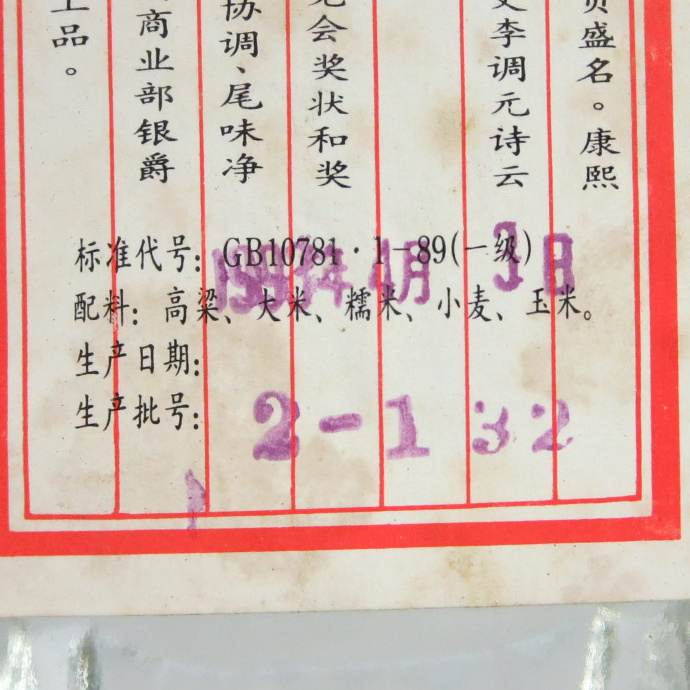 贡盛名。康熙
李调元诗云
会奖状和奖
协调、尾味净
商业部银爵
上品。
标准代号：GB10781·1-89(一级)
配料：高粱、大米、糯米、小麦、玉米。
生产日期：
月3日
生产批号：
2-1 32